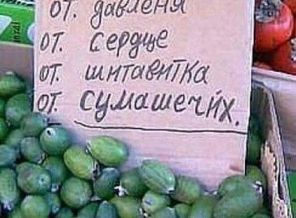 от. давленя
от. сердце
от. шитавитка
от. сумашечйх.